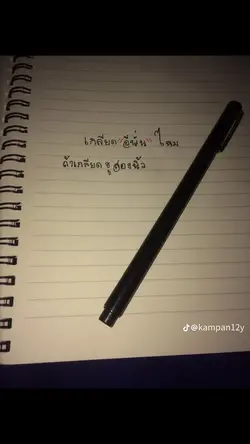 เกลียด "อีพั่น" ไหม
ถ้าเกลียด ชูสองนิ้ว
@kampan12y